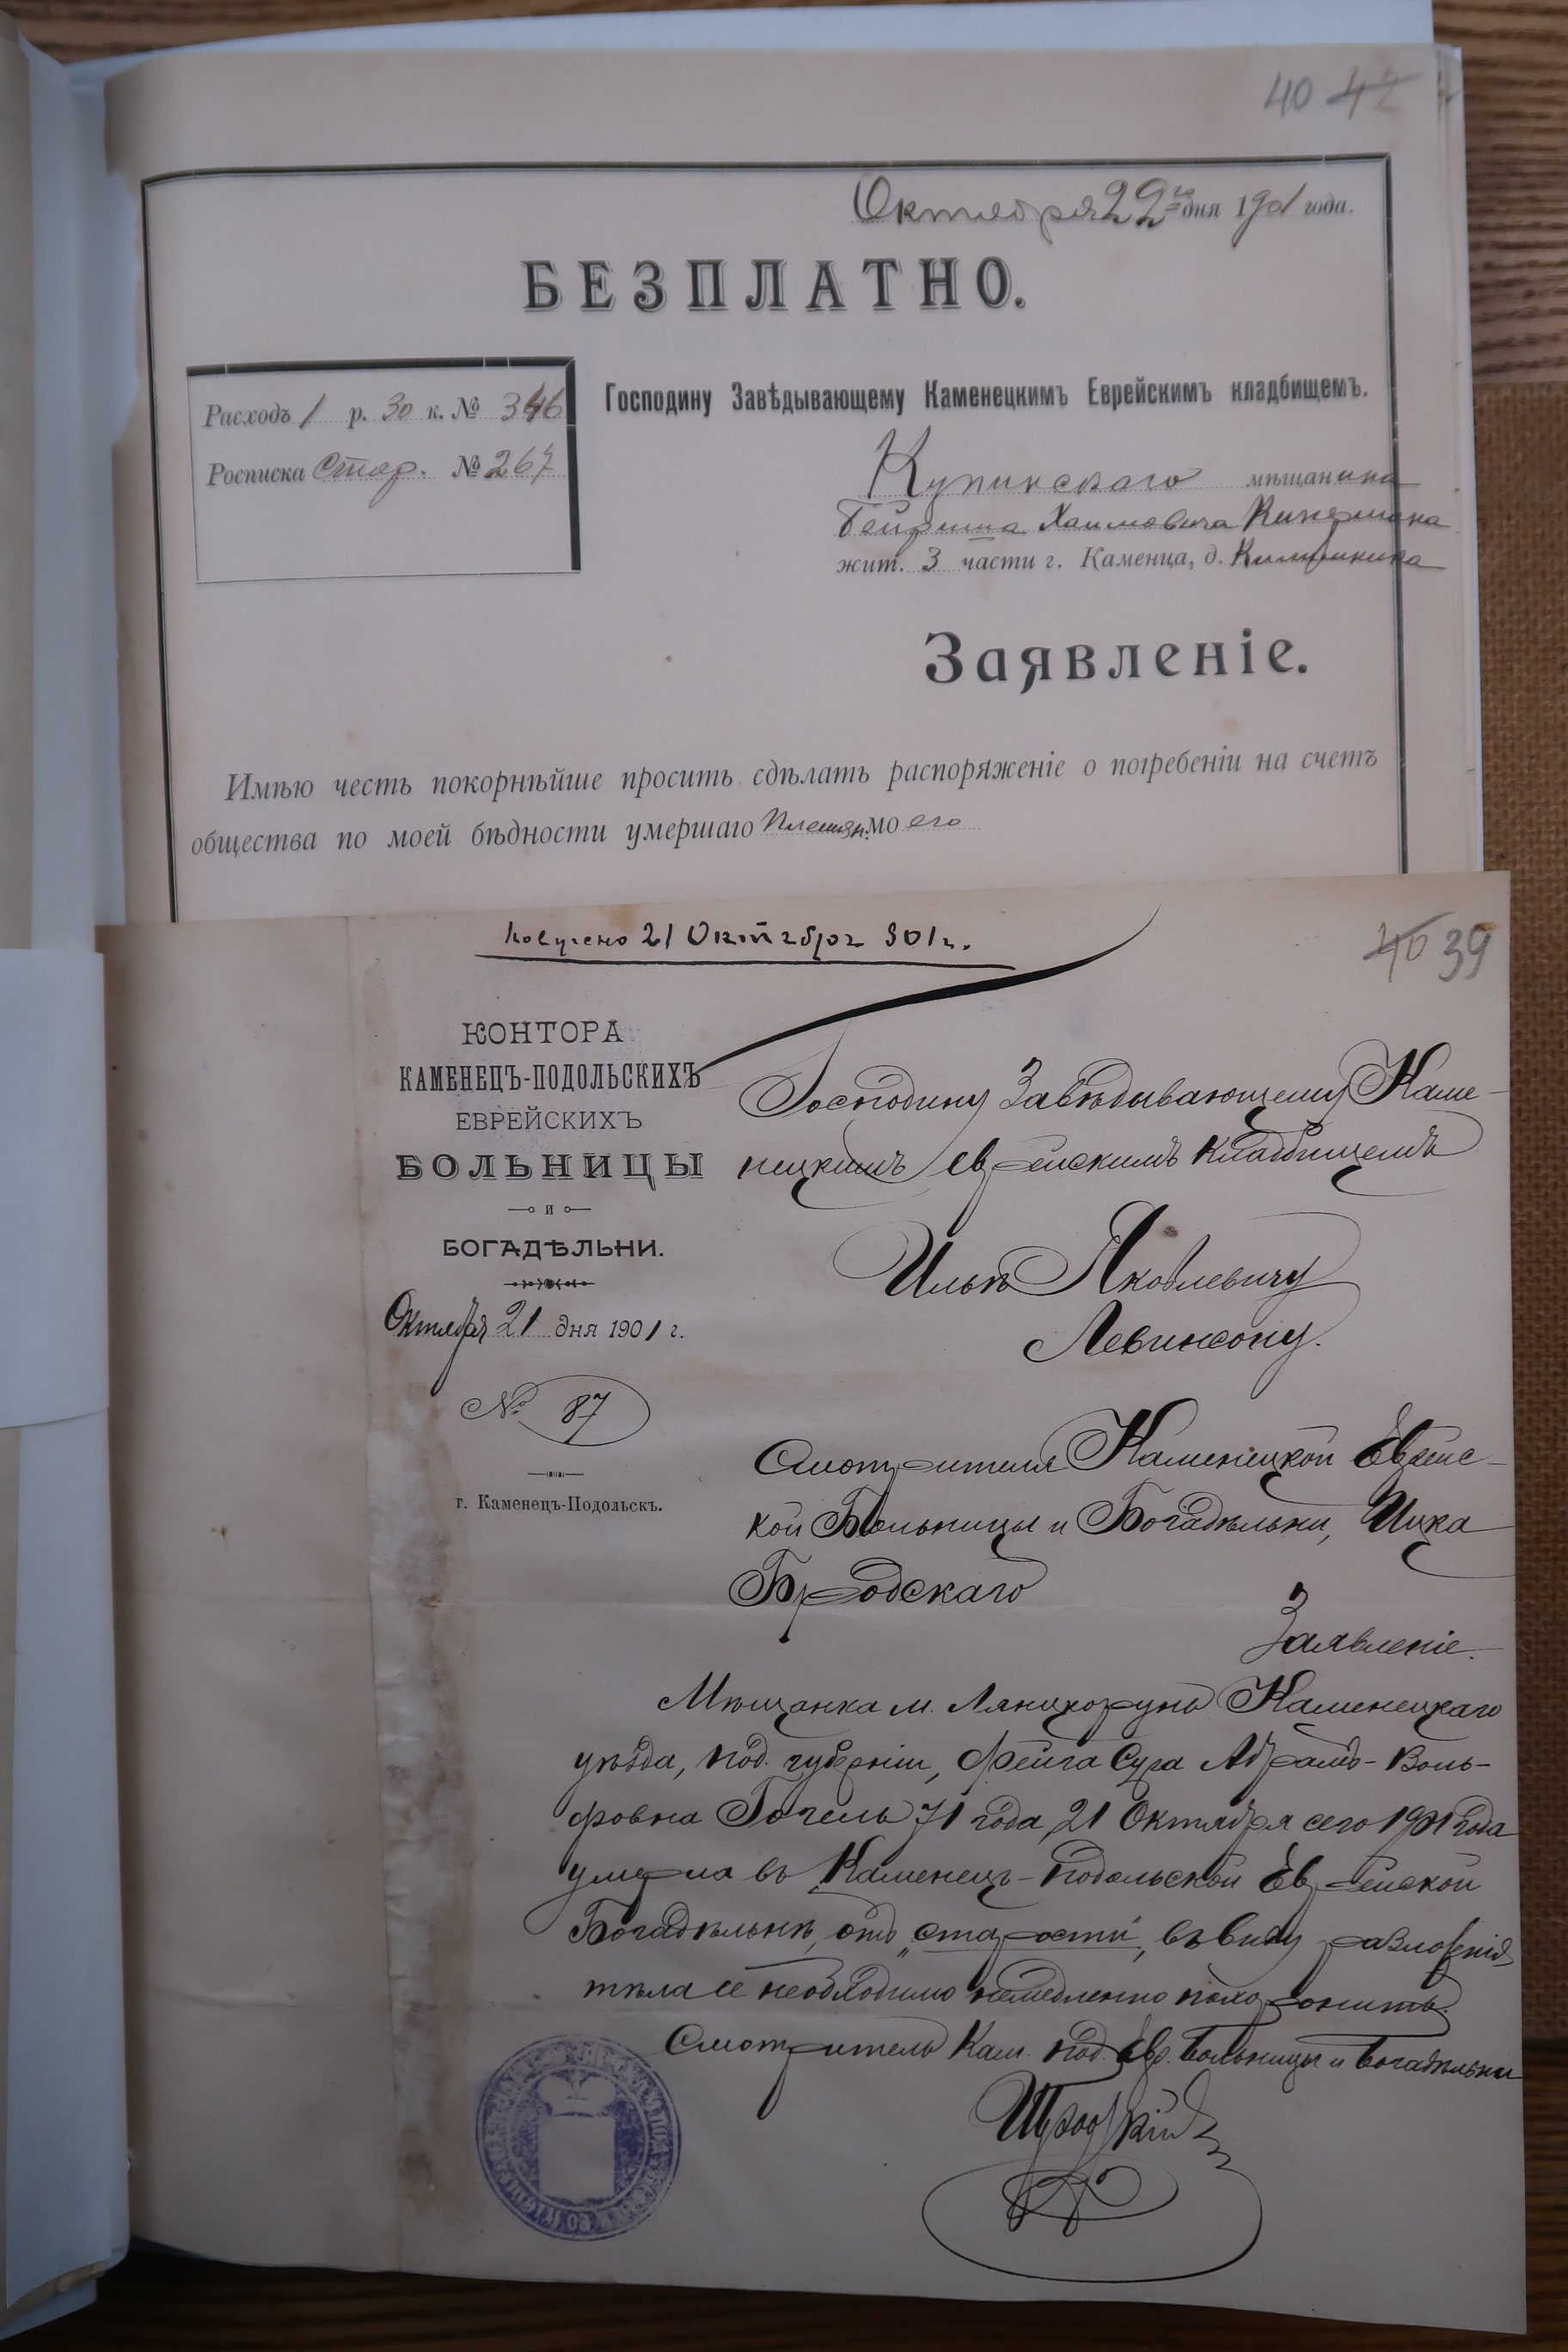 40 42
Октября 22го дня 1901 года.
БЕЗПЛАТНО.
Расходъ 1 р. 30 к. № 346
Росписка Стар. № 267
Господину Завѣдывающему Каменецкимъ Еврейскимъ кладбищемъ.
Купинскаго мѣщанина
Хаимовича
жит. 3 части г. Каменца, д.
Заявленіе.
Имѣю честь покорнѣйше просить сдѣлать распоряженіе о погребеніи на счетъ
общества по моей бѣдности умершаго племян. моего
Получено 21 Октября 901 г.
40 39
КОНТОРА
КАМЕНЕЦЪ-ПОДОЛЬСКИХЪ
ЕВРЕЙСКИХЪ
БОЛЬНИЦЫ
И
БОГАДѢЛЬНИ.
Октября 21 дня 1901 г.
№ 87
г. Каменецъ-Подольскъ.
Господину Завѣдывающему Каме-
нецкимъ еврейскимъ кладбищемъ
Ильѣ Яковлевичу
Левинсону.
Смотрителя Каменецкой Еврейс-
кой Больницы и Богадѣльни, Ицка
Бродскаго
Заявленіе.
Мѣщанка м. Лянцкорунь Каменецкаго
уѣзда, Под. губерніи, Фейга Сура Абрамъ-Воль-
фовна Гогель 71 года, 21 Октября сего 1901 года
умерла въ Каменецъ-Подольской Еврейской
Богадѣльнѣ, отъ „старости“, въ виду разложенія
тѣла ее необходимо немедленно похоронить.
Смотритель Кам. Под. Евр. Больницы и Богадѣльни
ИБродскій